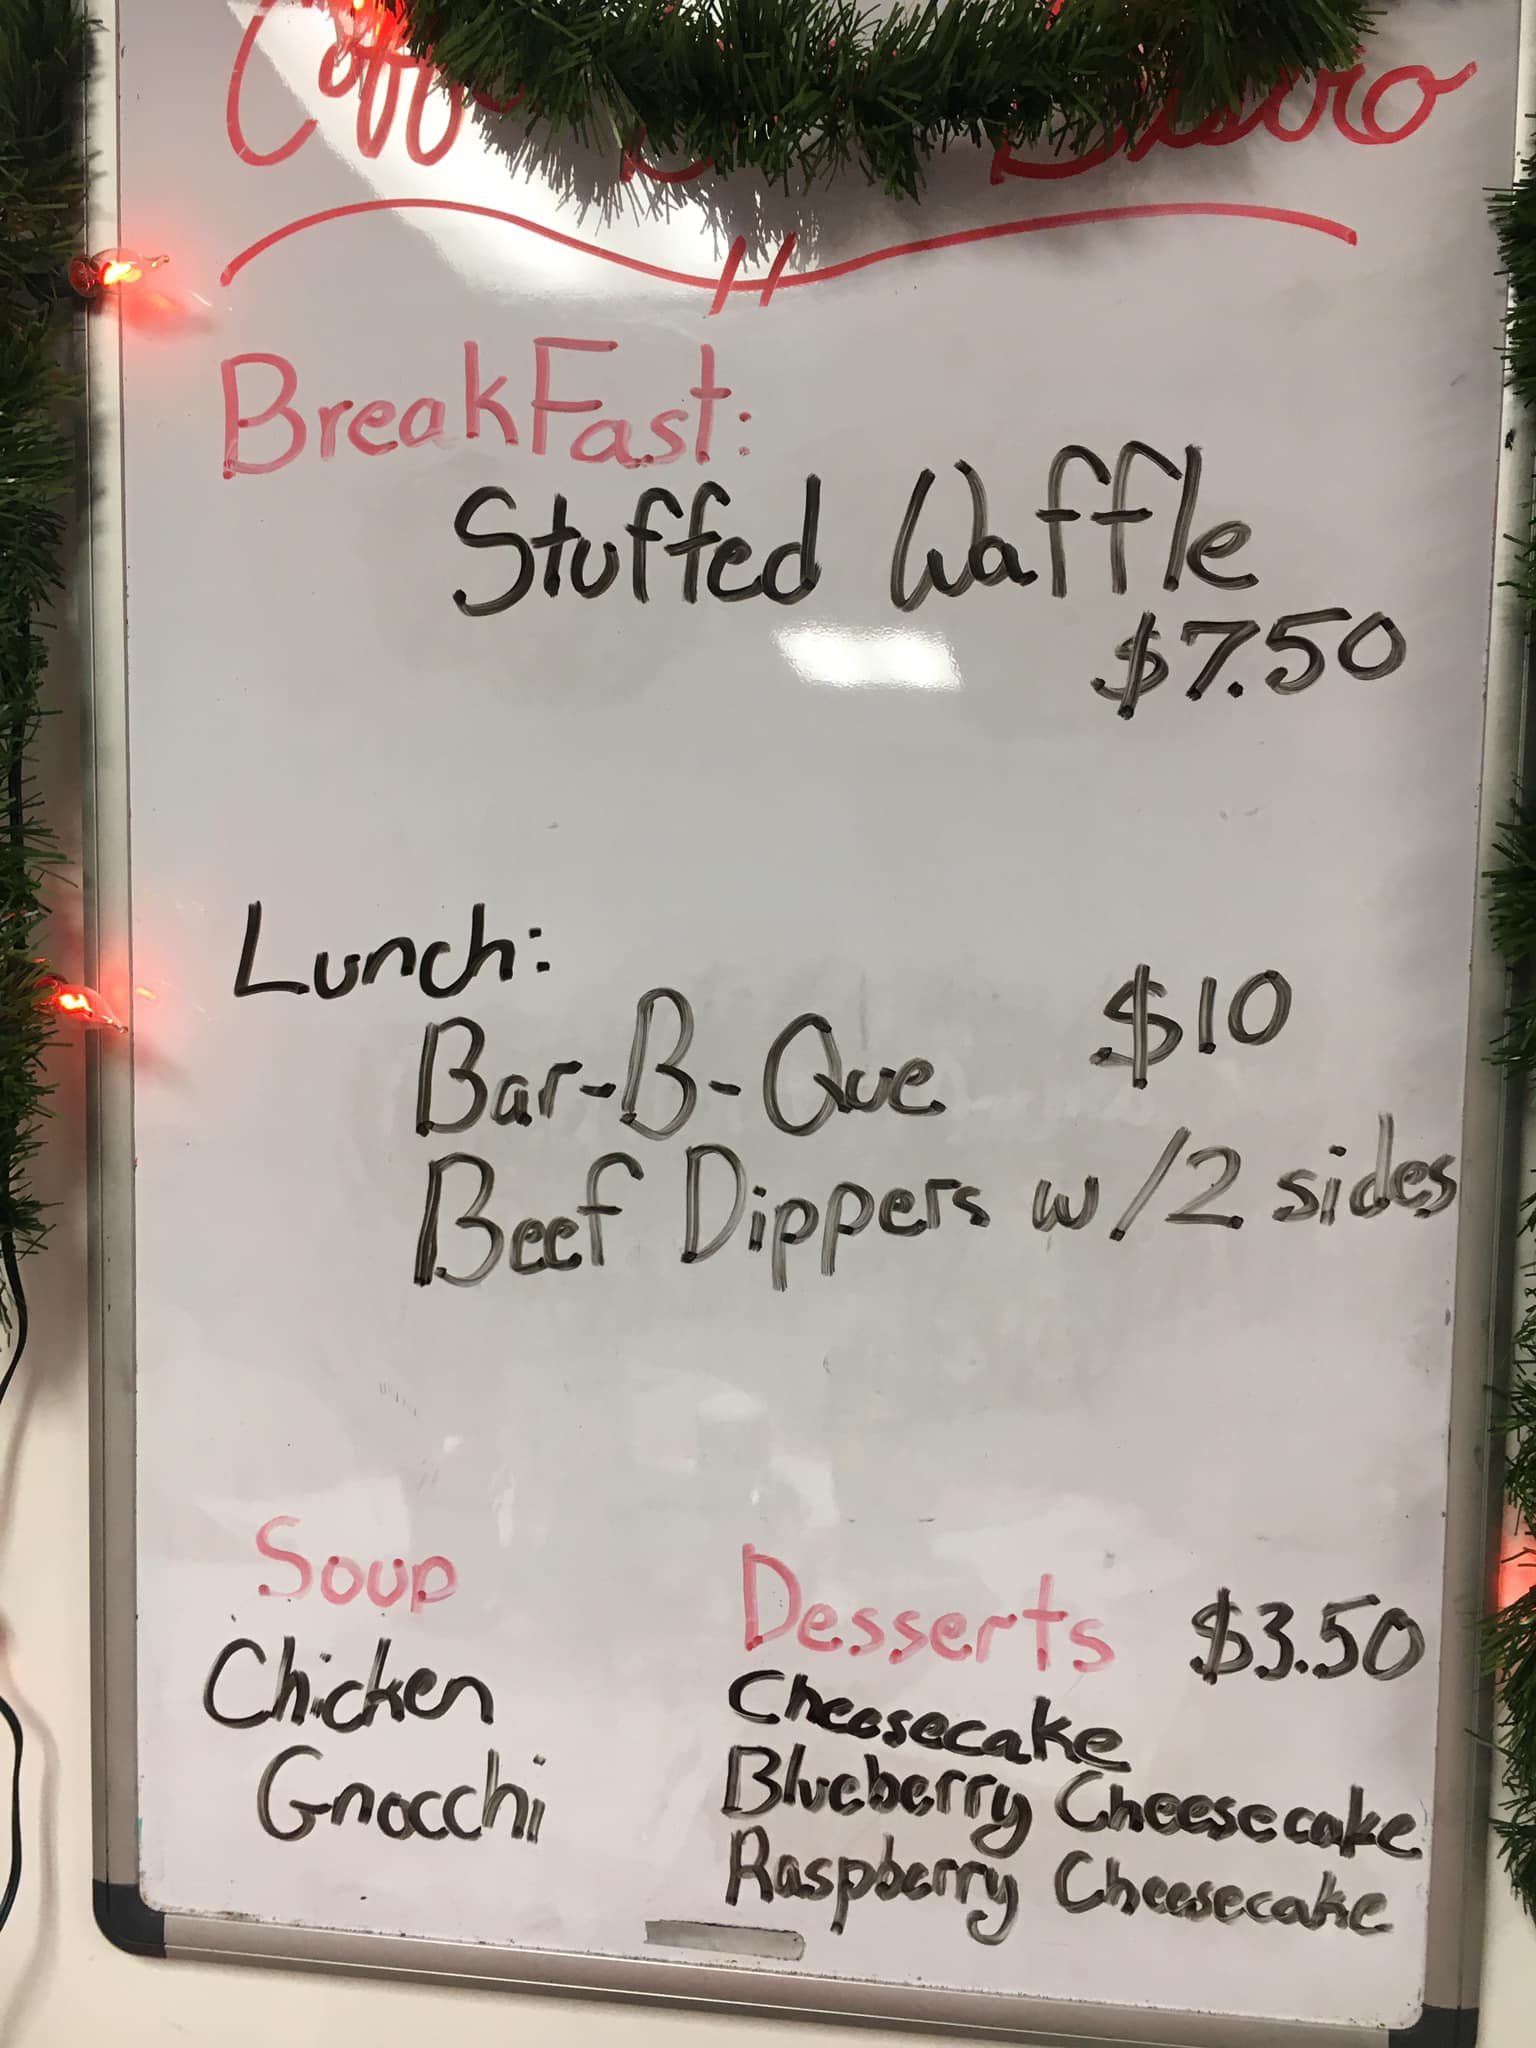 Bistro
BreakFast:
Stuffed Waffle
$7.50
Lunch:
Bar-B-Que $10
Beef Dippers w/2 sides
Soup
Chicken
Gnocchi
Desserts $3.50
Cheesecake
Blueberry Cheesecake
Raspberry Cheesecake